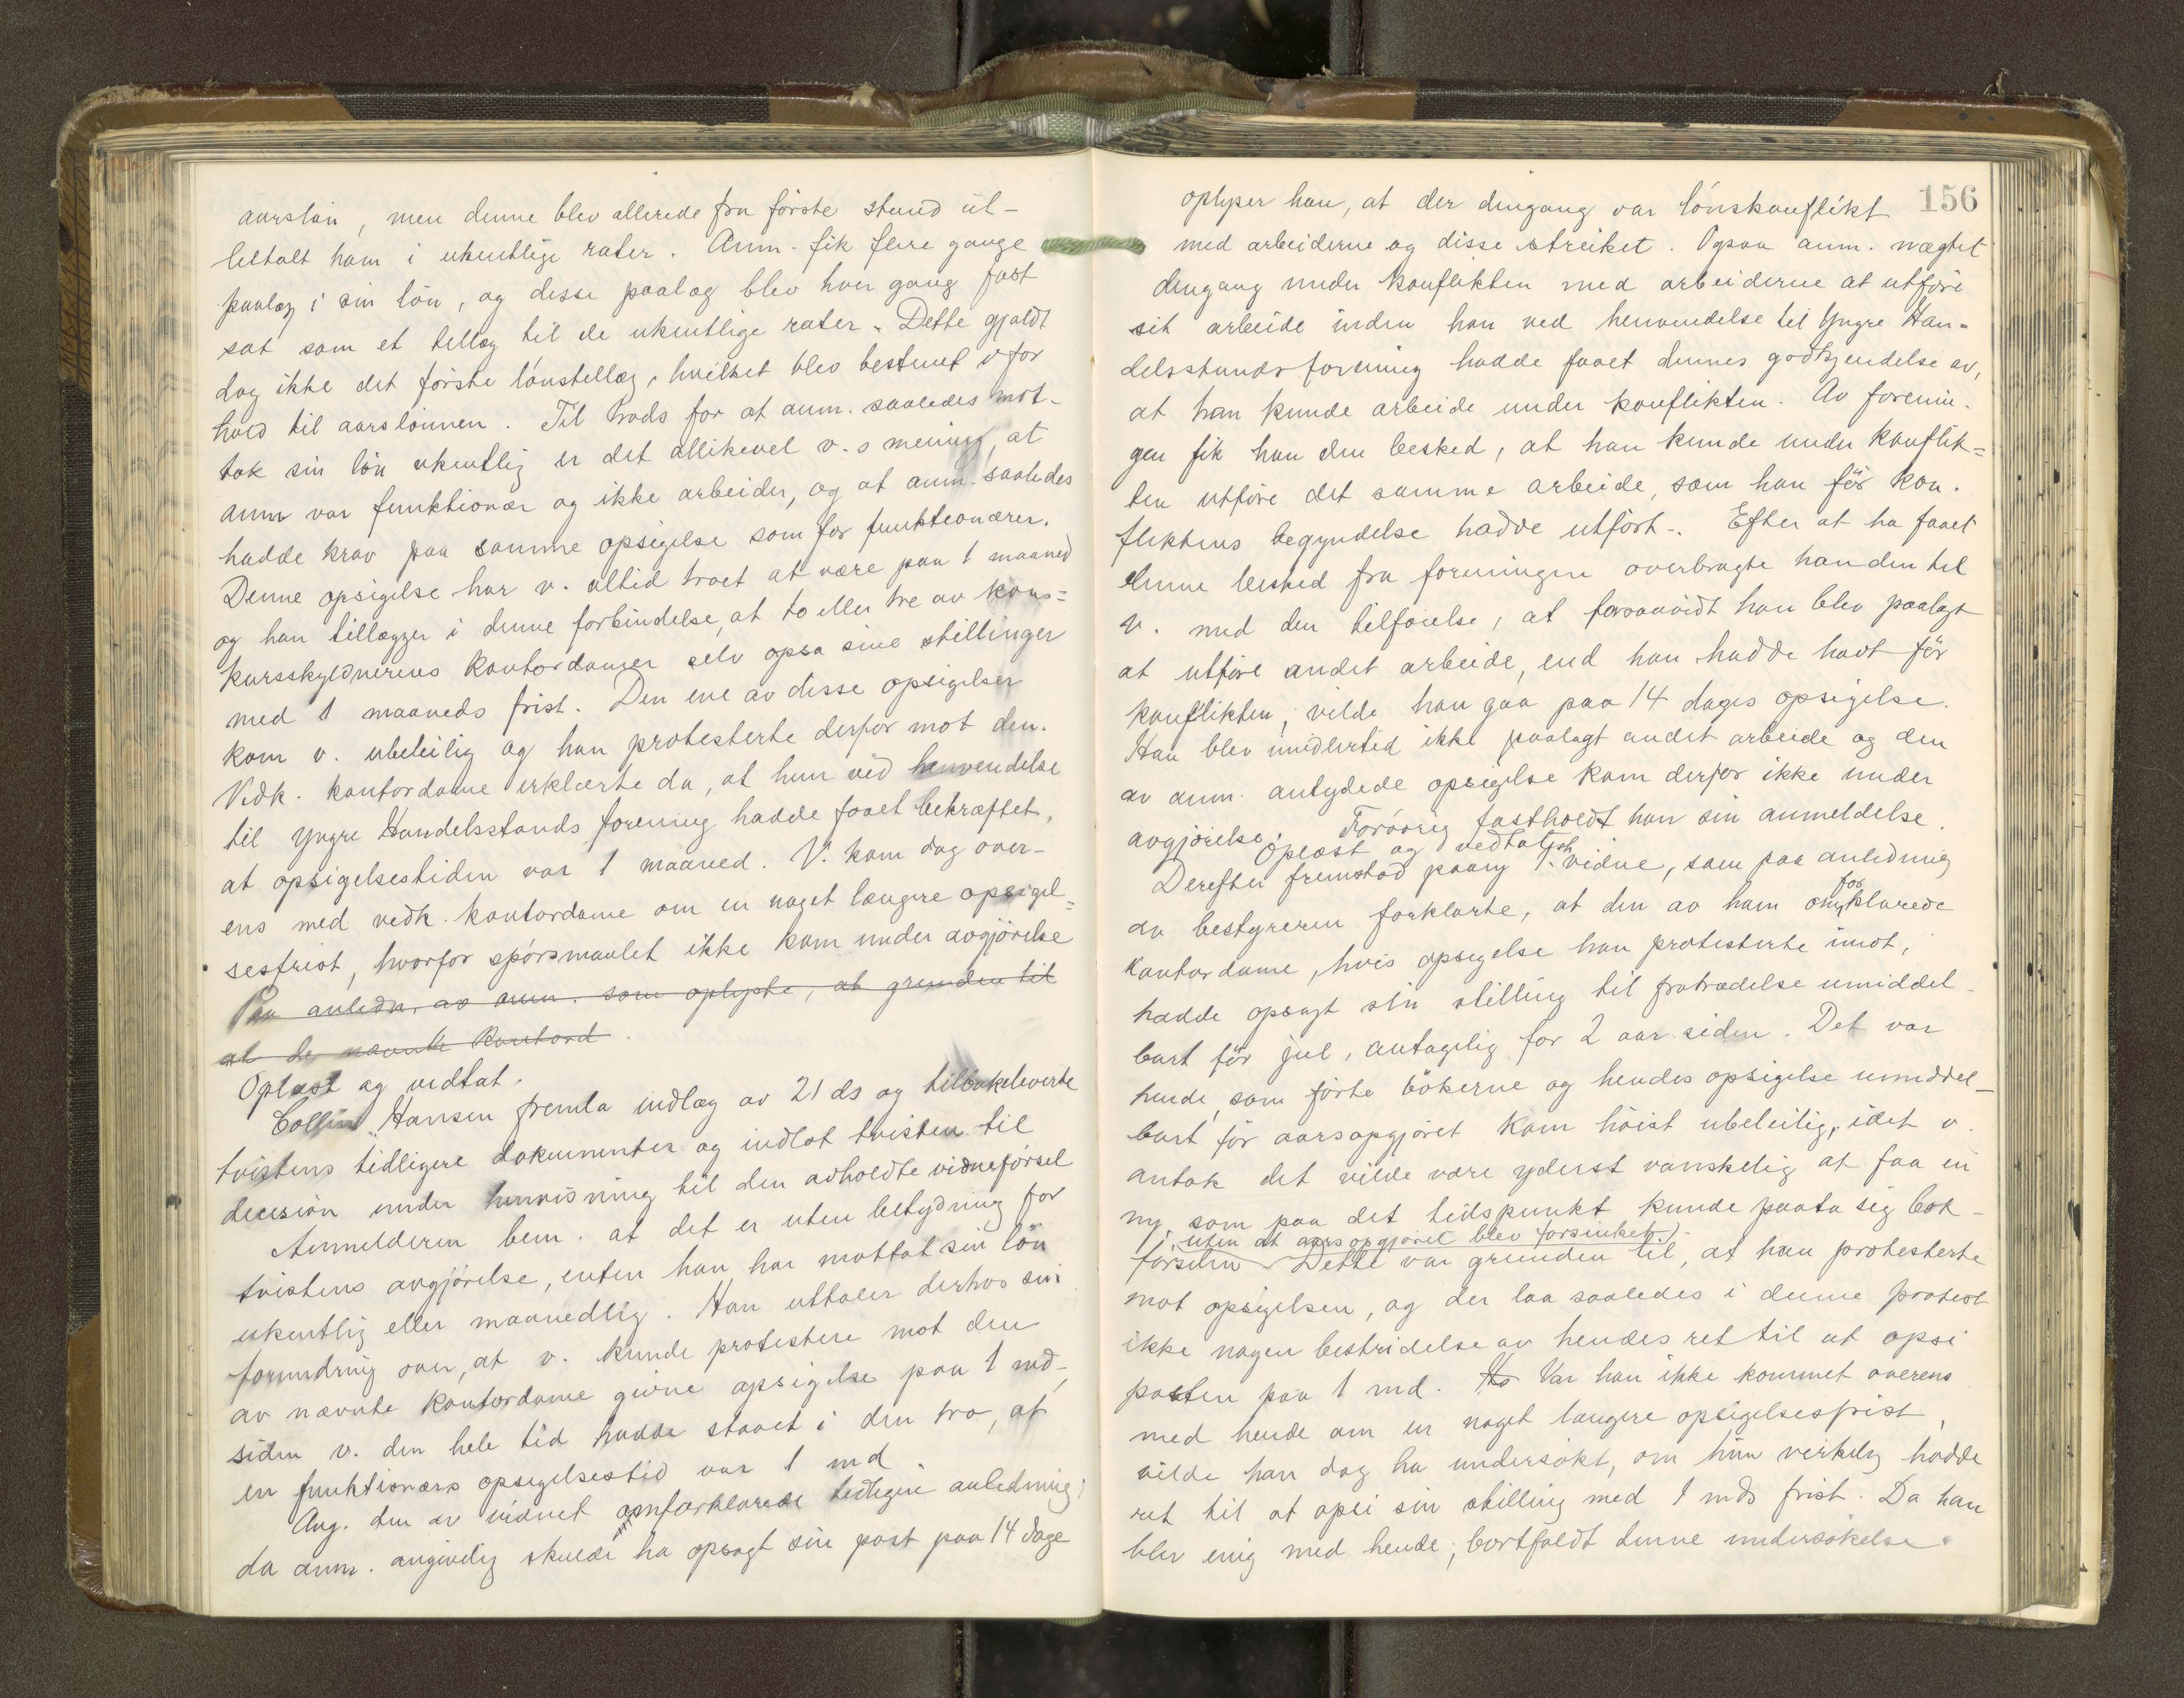 aarsløn, men denne blev allerede fra første stund ut-
betalt ham i ukentlige rater. Anm. fik flere gange
paalæg i sin løn, og disse paalæg blev hver gang fast
sat som et tillæg til de ukentlige rater. Dette gjaldt
dog ikke det første lønstillæg, hvilket blev bestemt i for
hold til aarslønnen. Til trods for at anm. saaledes mot-
tok sin løn ukentlig er det allikevel v.s mening, at
anm var funktionær og ikke arbeider, og at anm. saaledes
hadde krav paa samme opsigelse som for funktionærer.
Denne opsigelse har v. altid troet at være paa 1 maaned
og han tillægger i denne forbindelse, at to eller tre av kon-
kursskyldnerens kontordamer selv opsa sine stillinger
med 1 maaneds frist. Den ene av disse opsigelser
kom v. ubeleilig og han protesterte derfor mot den.
Vedk. kontordame erklærte da, at hun ved henvendelse
til Yngre Handelsstands forening hadde faaet bekræftet,
at opsigelsestiden var 1 maaned. V. kom dog over-
ens med vedk. kontordame om en noget længere opsigel=
sesfrist, hvorfor spørsmaalet ikke kom under avgjørelse
Paa anledn. av anm. som oplyste, at grunden til
at de nævnte kontord
Oplæst og vedtat.
Collin Hansen fremla indlæg av 21 ds og tilbakeleverte
tvistens tidligere dokumenter og indlot tvisten til
decision under henvisning til den avholdte vidneførsel
Anmelderen bem. at det er uten betydning for
tvistens avgjørelse, enten han har mottat sin løn
ukentlig eller maanedlig. Han uttaler derhos sin
forundring over, at v. kunde protestere mot den
av nævnte kontordame givne opsigelse paa 1 md,
siden v. den hele tid hadde staaet i den tro, at
en funktionærs opsigelsestid var 1 md
Ang. den av vidnet omforklarede tidligere anledning,
da anm. angivelig skulde ha opsagt sin post paa 14 dage
156
oplyser han, at der dengang var lønskonflikt
med arbeiderne og disse streiket. Ogsaa anm. nægtet
dengang under konflikten med arbeiderne at utføre
sit arbeide inden han ved henvendelse til Yngre Han=
delsstands forening hadde faaet dennes godkjendelse av,
at han kunde arbeide under konflikten. Av forenin-
gen fik han den besked, at han kunde under konflik=
ten utføre det samme arbeide, som han før kon-
fliktens begyndelse hadde utført. Efter at ha faaet
denne besked fra foreningen overbragte han den til
v. med den tilføielse, at forsaavidt han blev paalagt
at utføre andet arbeide, end han hadde havt før
konflikten, vilde han gaa paa 14 dages opsigelse.
Han blev imidlertid ikke paalagt andet arbeide og den
av anm. antydede opsigelse kom derfor ikke under
avgjørelse. Forøvrig fastholdt han sin anmeldelse.
Oplæst og vedtat
Derefter fremstod paany 1ste vidne, som paa anledning
av bestyreren forklarte, at den av ham omforklarede
kontordame, hvis opsigelse han protesterte imot,
hadde opsagt sin stilling til fratrædelse umiddel-
bart før jul, antagelig for 2 aar siden. Det var
hende, som førte bøkerne og hendes opsigelse umiddel-
bart før aarsopgjøret kom høist ubeleilig, idet v.
antok det vilde være yderst vanskelig at faa en
ny, som paa det tidspunkt kunde paata sig bok-
førselen, uten at aarsopgjøret blev forsinket. Dette var grunden til, at han protesterte
mot opsigelsen, og der laa saaledes i denne protest
ikke nogen bestridelse av hendes ret til at opsi
posten paa 1 md. Var han ikke kommet overens
med hende om en noget længere opsigelsesfrist,
vilde han dog ha undersøkt, om hun virkelig hadde
ret til at opsi sin stilling med 1 mds frist. Da han
blev enig med hende, bortfaldt denne undersøkelse.